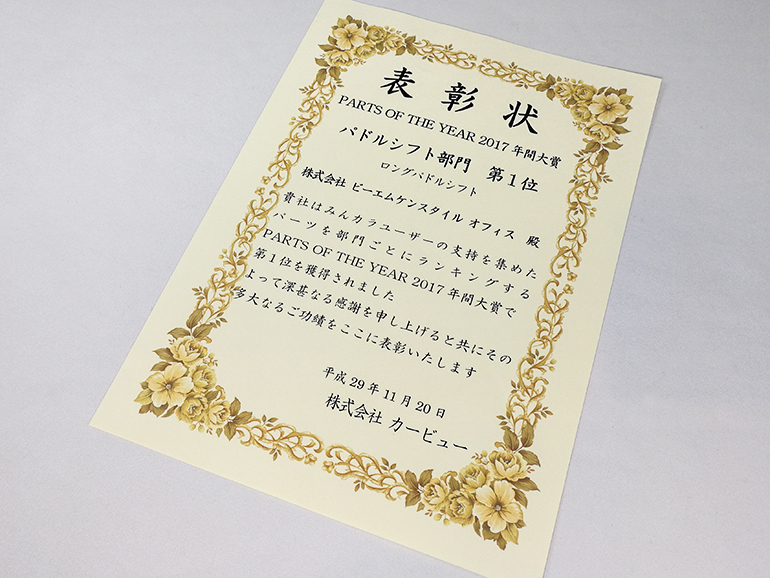 表彰状
PARTS OF THE YEAR 2017 年間大賞
パドルシフト部門 第1位
ロングパドルシフト
株式会社 ビーエムケンスタイル オフィス 殿
貴社はみんカラユーザーの支持を集めた
パーツを部門ごとにランキングする
PARTS OF THE YEAR 2017 年間大賞で
第1位を獲得されました
よって深甚なる感謝を申し上げると共にその
多大なるご功績をここに表彰いたします
平成 29 年 11 月 20 日
株式会社 カービュー